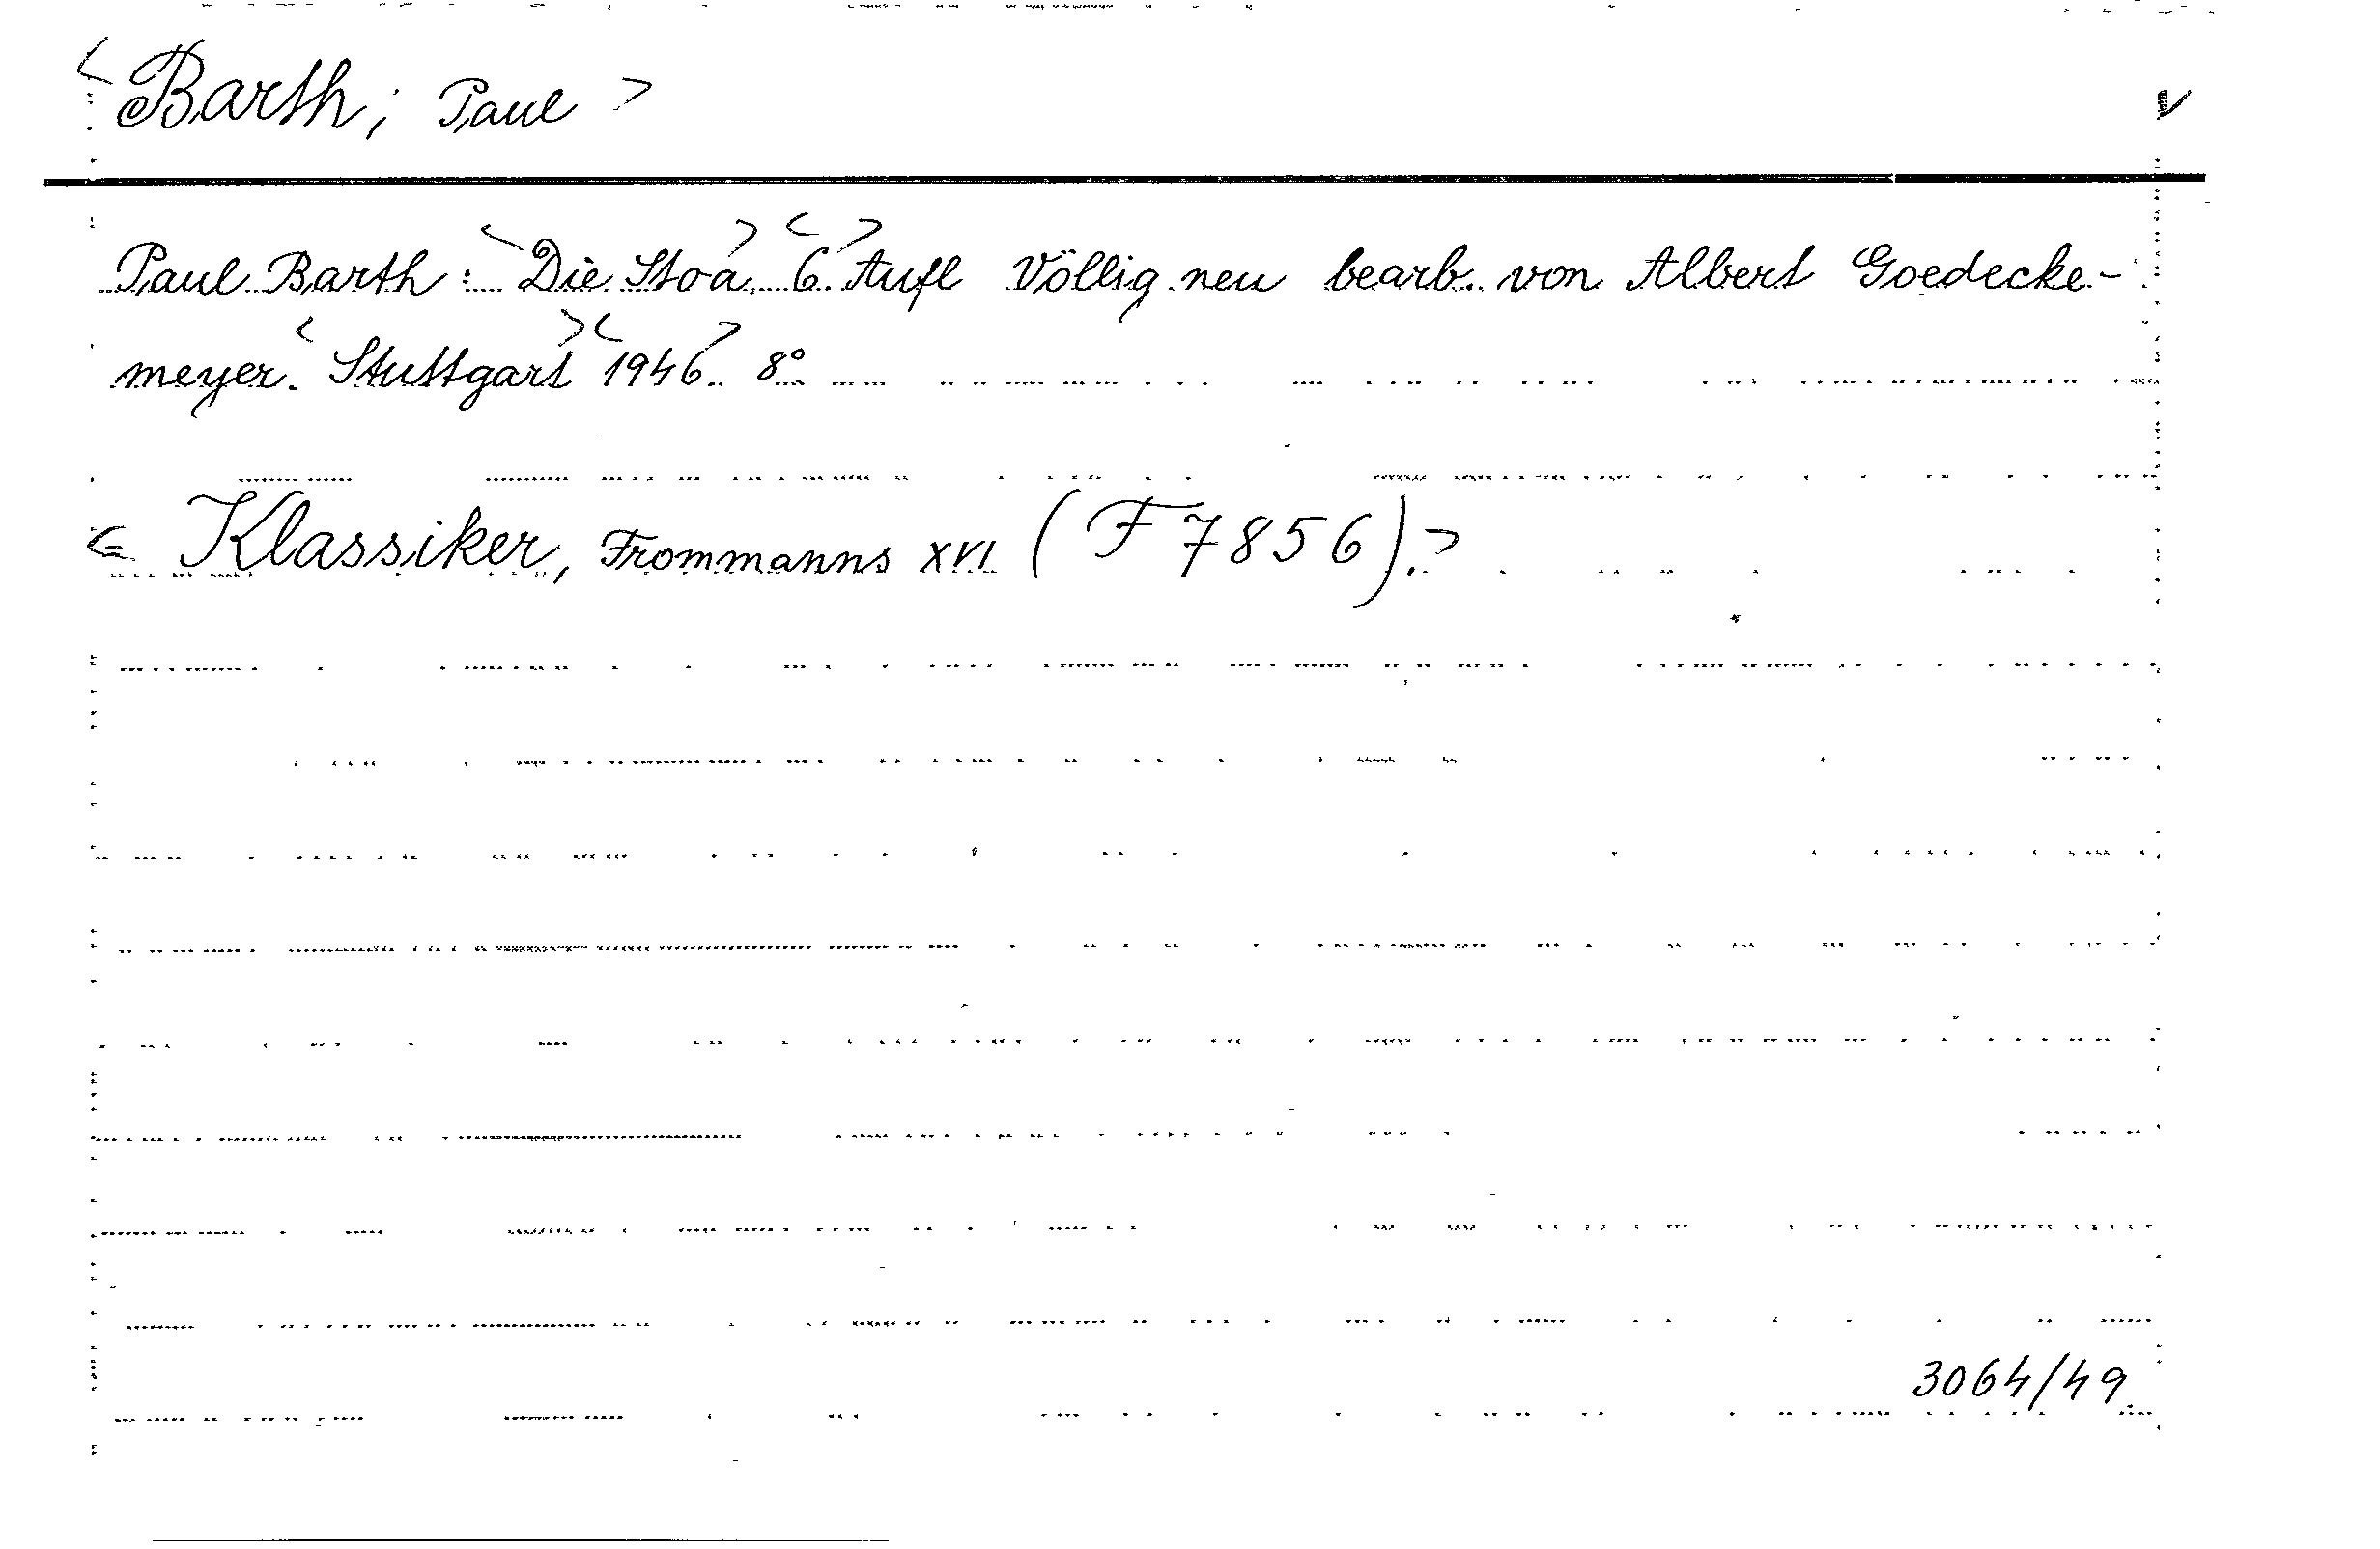 <Barth, Paul> v
Paul Barth: <Die Stoa.> <6.> Aufl Völlig neu bearb. von Albert Goedecke-
meyer. <Stuttgart> <1946>. 8°
< Klassiker, Frommanns XVI (F 7856).>
3064/49